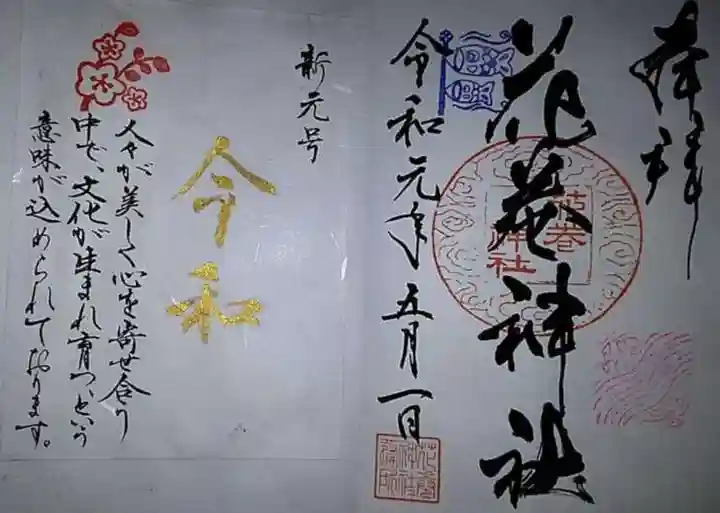 奉拝
花巻神社
花巻
神社
令和元年五月一日
新元号
令和
人々が美しく心を寄せ合り
中で、文化が生まれ育つ、という
意味が込められております。